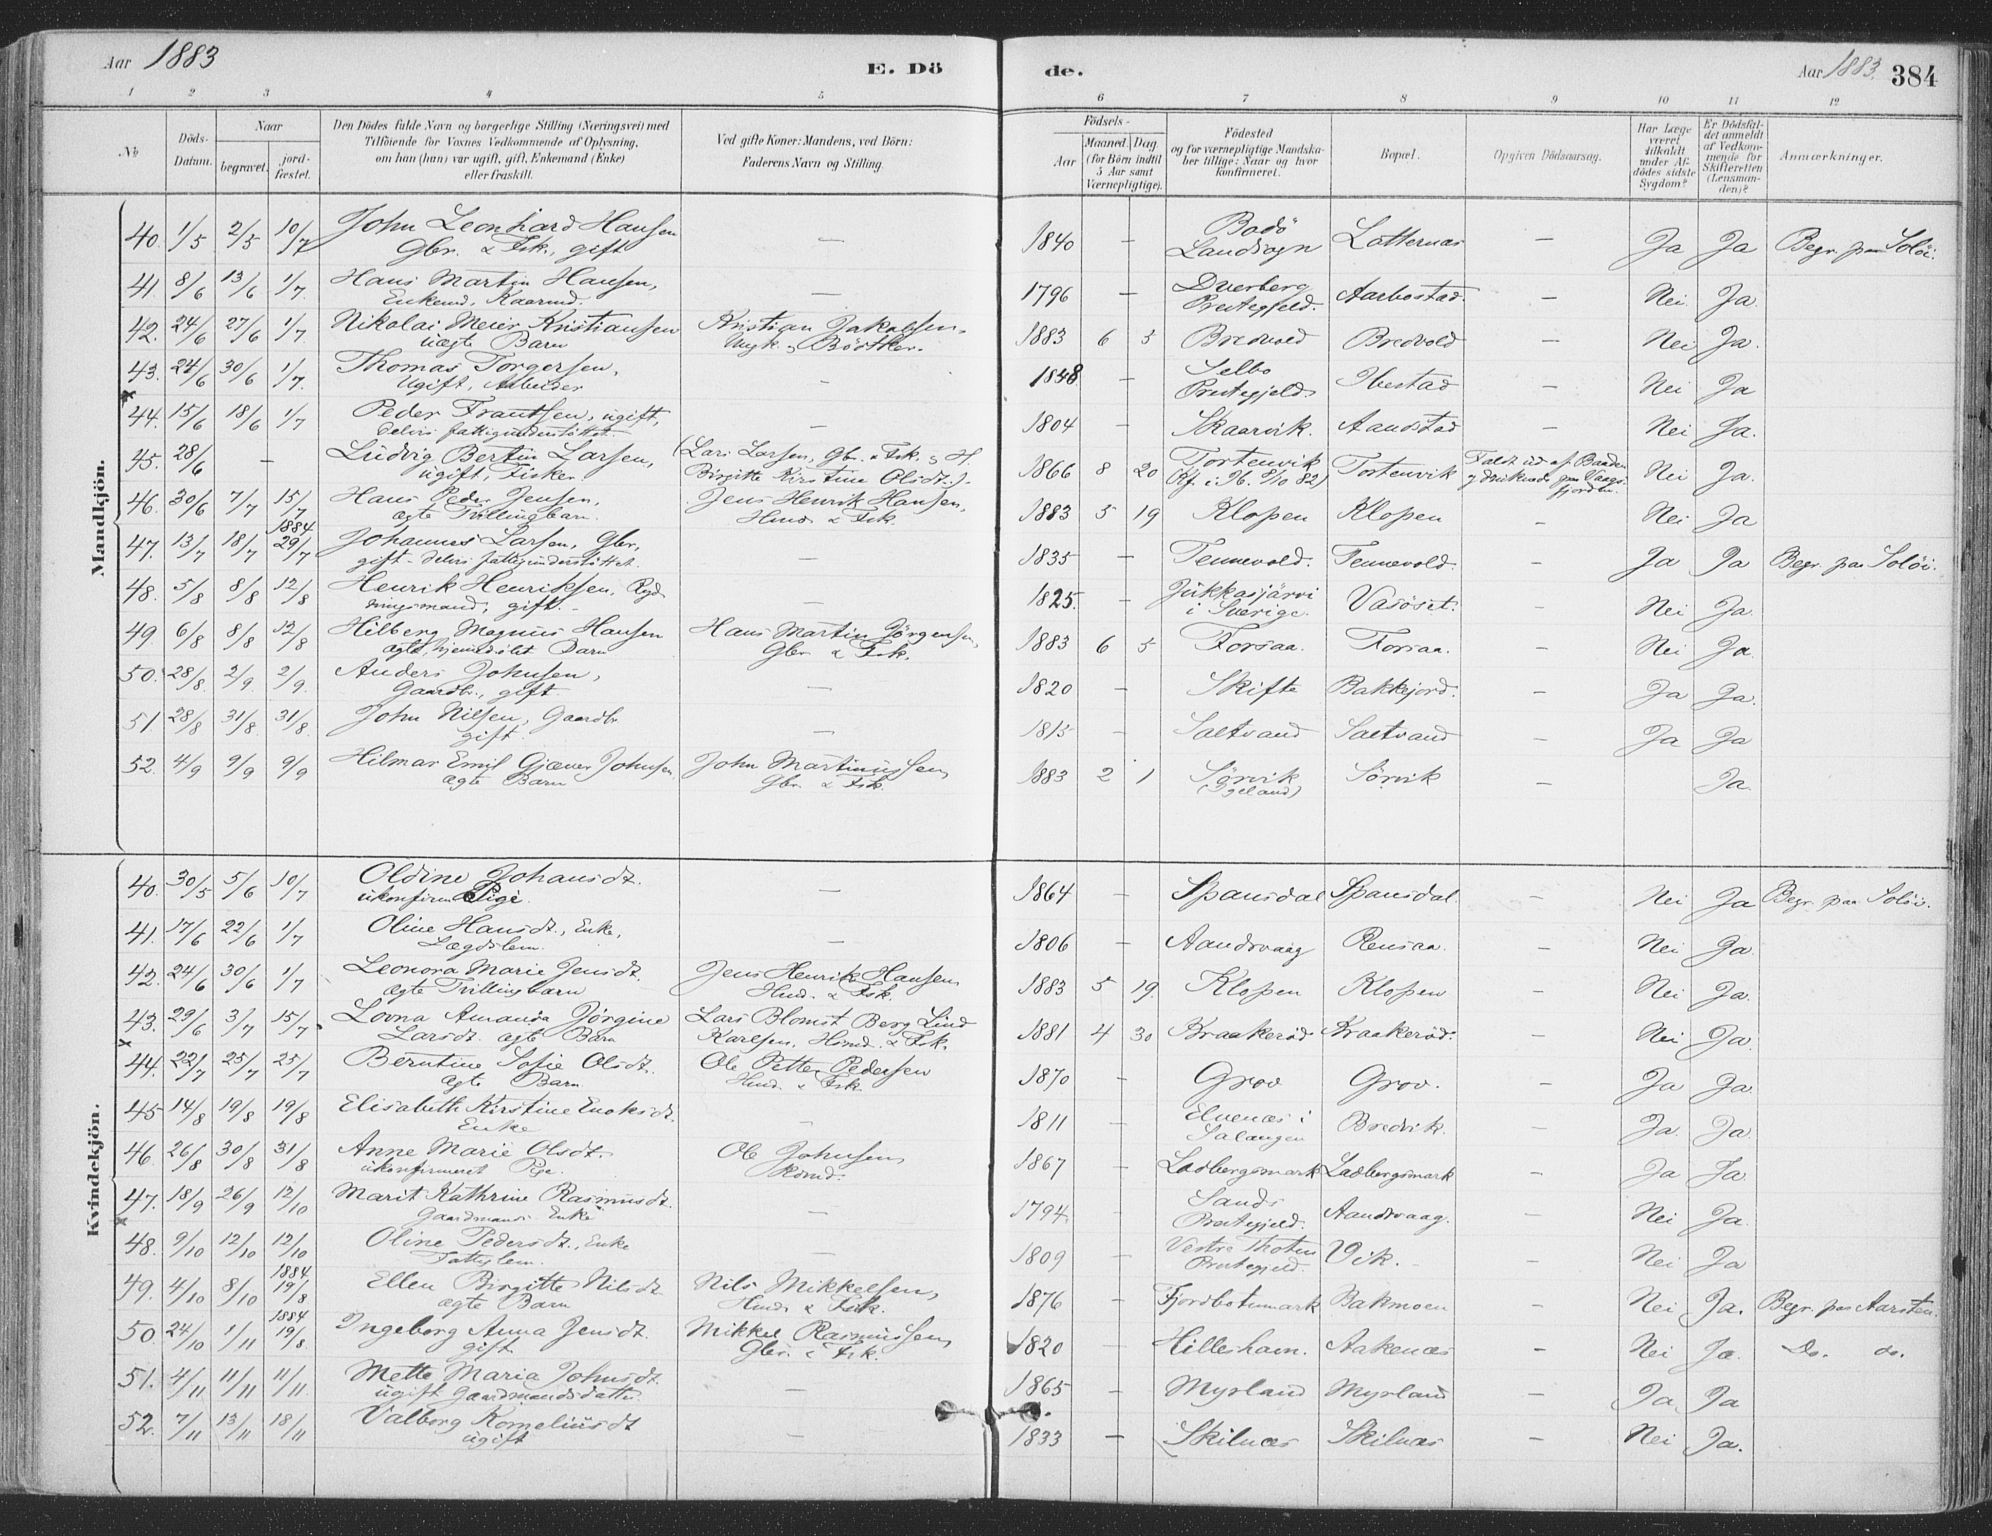 Aar 1883 E. Dö de. Aar 1883. 384
1 2 3 4 5 6 7 8 9 10 11 12
No. Döds-Datum. Naar begravet. jordfæstet. Den Dödes fulde Navn og borgerlige Stilling (Næringsvei) med Tilföiende for Voxnes Vedkommende af Oplysning, om han (hun) var ugift, gift, Enkemand (Enke) eller fraskilt. Ved gifte Koner: Mandens, ved Börn: Faderens Navn og Stilling. Födsels- Aar Maaned. Dag. (for Börn indtil 5 Aar samt Værnepligtige). Födested og for værnepligtige Mandskaber tillige: Naar og hvor konfirmeret. Bopæl. Opgiven Dödsaarsag. Har Læge været tilkaldt under Afdödes sidste Sygdom? Er Dödsfaldet anmeldt af Vedkommende for Skifteretten (Lensmanden)? Anmærkninger.
Mandkjön.
40. 1/5 2/5 10/7 John Leonhard Hansen — 1840 — Bodö Lotternæs — Ja Ja Begr. paa Solöi.
Gbr. & Fsk., gift Landsogn
41. 8/6 13/6 1/7. Hans Martin Hansen, — 1796 — Dverberg Aarbostad. — Nei Ja.
Enkemd, Kaarmd. Prestegjeld.
42. 24/6 27/6 1/7. Nikolai Meier Kristiansen Kristian Jakobsen, 1883 6 5 Bredvold Bredvold — Nei Ja.
uægte Barn Ungk. & Bödtker.
43. 24/6 30/6 1/7. Thomas Torgersen, — 1848 — Selbo Ibestad — Nei Ja
Ugift, Arbeider Prestegjeld
44. 15/6 18/6 1/7 Peder Frantsen, ugift, — 1804 — Skaarvik. Aandstad — Nei Ja.
delvis fattigunderstöttet.
45. 28/6 — Ludvig Bertin Larsen, (Lars Larsen, Gbr. & Fsk. & H. 1866 8 20 Tortenvik Tortenvik Faldt ud af Baaden Nei Ja.
ugift, Fisker Birgitte Kirstine Olsdt.). (Kf. i Ib. 8/10 82) & druknede paa Vaagsfjorden.
46. 30/6 7/7 15/7 Hans Peder Jensen, Jens Henrik Hansen, 1883 5 19 Klopen Klopen — Nei Ja
ægte Tvillingbarn. Hmd & Fsk.
47. 13/7 18/7 1884 29/7 Johannes Larsen, Gbr, — 1835 — Tennevold. Tennevold. — Ja Ja Begr. paa Solöi.
gift - delvis fattigunderstöttet.
48. 5/8 8/8 12/8 Henrik Henriksen, Ryd — 1825. — Jukkasjärvi Vasöset. — Nei Ja.
ningsmand, gift. i Sverige.
49. 6/8 8/8 12/8 Hilberg Magnus Hansen Hans Martin Jörgensen, 1883 6 5 Forsaa. Forsaa. — Nei Ja
ægte, hjemmedöbt Barn Gbr & Fsk.
50. 28/8 2/9. 2/9. Anders Johnsen, — 1820 — Skifte Bakkejord. — Ja Ja.
Gaardbr., gift
51 28/8 31/8 31/8. John Nilsen, Gaardbr — 1815 — Saltvand Saltvand — Ja Ja
gift.
52. 4/9 9/9 9/9 Hilmar Emil Gjæver Johnsen John Martinussen, 1883 2 1 Sörvik Sörvik — Ja.
ægte Barn Gbr & Fsk.
Kvindekjön.
40. 30/5 5/6 10/7 Oldine Johansdt. — 1864 — Spansdal Spansdal. — Nei Ja Begr. paa Solöi.
ukonfirm Pige.
41. 17/6 22/6 1/7 Oline Hansdt., Enke, — 1806 — Aandsvaag Rensaa. — Nei Ja.
Lægdslem.
42. 24/6 30/6 1/7 Leonora Marie Jensdt. Jens Henrik Hansen, 1883 5 19. Klopen Klopen — Nei Ja.
ægte Tvillingbarn Hmd. & Fsk.
43. 29/6 3/7 15/7 Lovna Amanda Jörgine Lars Blomst Berg Lind 1881 4 30 Kraakeröd Kraakeröd. — Nei Ja.
Larsdt. ægte Barn Karlsen, Hmd. & Fsk.
44. 22/7 25/7 25/7 Berntine Sofie Olsdt. Ole Petter Pedersen 1870 — Grov Grov. — Ja Ja.
ægte Barn Hmd. & Fsk.
45 14/8 19/8 19/8 Elisabeth Kirstine Enoksdt. — 1811 — Elvenæs i Bredvik. — Ja. Ja.
Enke Salangen
46. 26/8 30/8 31/8 Anne Marie Olsdt. Ole Johnsen, 1867 — Ladbergsmark Ladbergsmark — Ja Ja
ukonfirmeret Pige.
47. 18/9 26/9 12/10 Marit Kathrine Rasmusdt. — 1794. — Sands Aandsvaag. — Nei Ja.
Gaardmands Enke Prestegjeld.
48. 9/10 12/10 12/10 Oline Pedersdt., Enke — 1809 — Vestre Thoten Vik. — Nei Ja
Fattiglem. Prestegjeld.
49. 4/10 8/10 1884 19/8 Ellen Birgitte Nilsdt. Nils Mikkelsen, 1876 — Fjordbotnmark Bakmoen — Nei Ja. Begr. paa Aarsten.
ægte Barn Hmd & Fsk.
50 24/10 1/11 1884 19/8. Ingeborg Anna Jensdt. Mikkel Rasmussen, 1820 — Hillesham. Aakenæs — Nei Ja. Do. do.
gift Gbr. & Fsk.
51. 4/11 11/11 11/11 Mette Maria Johnsdt. — 1865 — Myrland Myrland — Ja Ja
ugift Gaardmandsdatter
52. 7/11 13/11 18/11 Valborg Korneliusdt — 1833 — Skilnæs Skilnæs — Nei Ja.
ugift